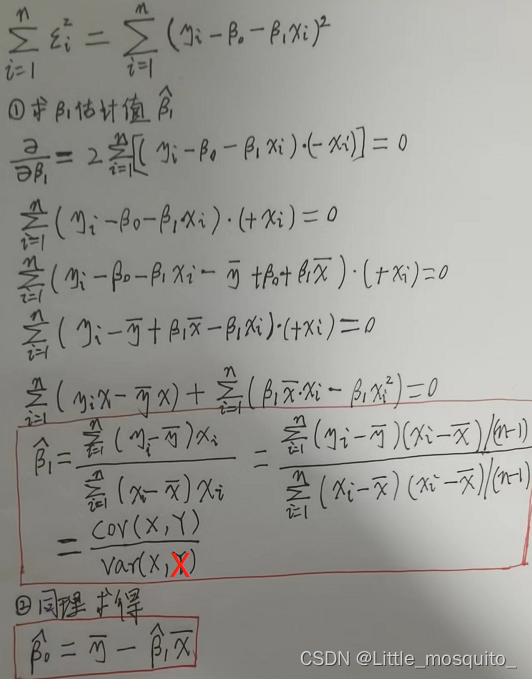 ∑_{i=1}^{n} ε_i² = ∑_{i=1}^{n} (y_i − β₀ − β₁x_i)²
①求β₁估计值 β̂₁
∂/∂β₁ = 2∑_{i=1}^{n}[(y_i − β₀ − β₁x_i)·(−x_i)] = 0
∑_{i=1}^{n} (y_i − β₀ − β₁x_i)·(+x_i) = 0
∑_{i=1}^{n} (y_i − β₀ − β₁x_i − ȳ + β₀ + β₁x̄)·(+x_i) = 0
∑_{i=1}^{n} (y_i − ȳ + β₁x̄ − β₁x_i)·(+x_i) = 0
∑_{i=1}^{n} (y_i x − ȳ x) + ∑_{i=1}^{n} (β₁x̄·x_i − β₁x_i²) = 0
β̂₁ = ∑_{i=1}^{n} (y_i − ȳ)x_i / ∑_{i=1}^{n} (x_i − x̄)x_i = ∑_{i=1}^{n} (y_i − ȳ)(x_i − x̄)/(n−1) / ∑_{i=1}^{n} (x_i − x̄)(x_i − x̄)/(n−1)
= cov(X,Y) / var(X,X)
②同理求得
β̂₀ = ȳ − β̂₁x̄
CSDN @Little_mosquito_